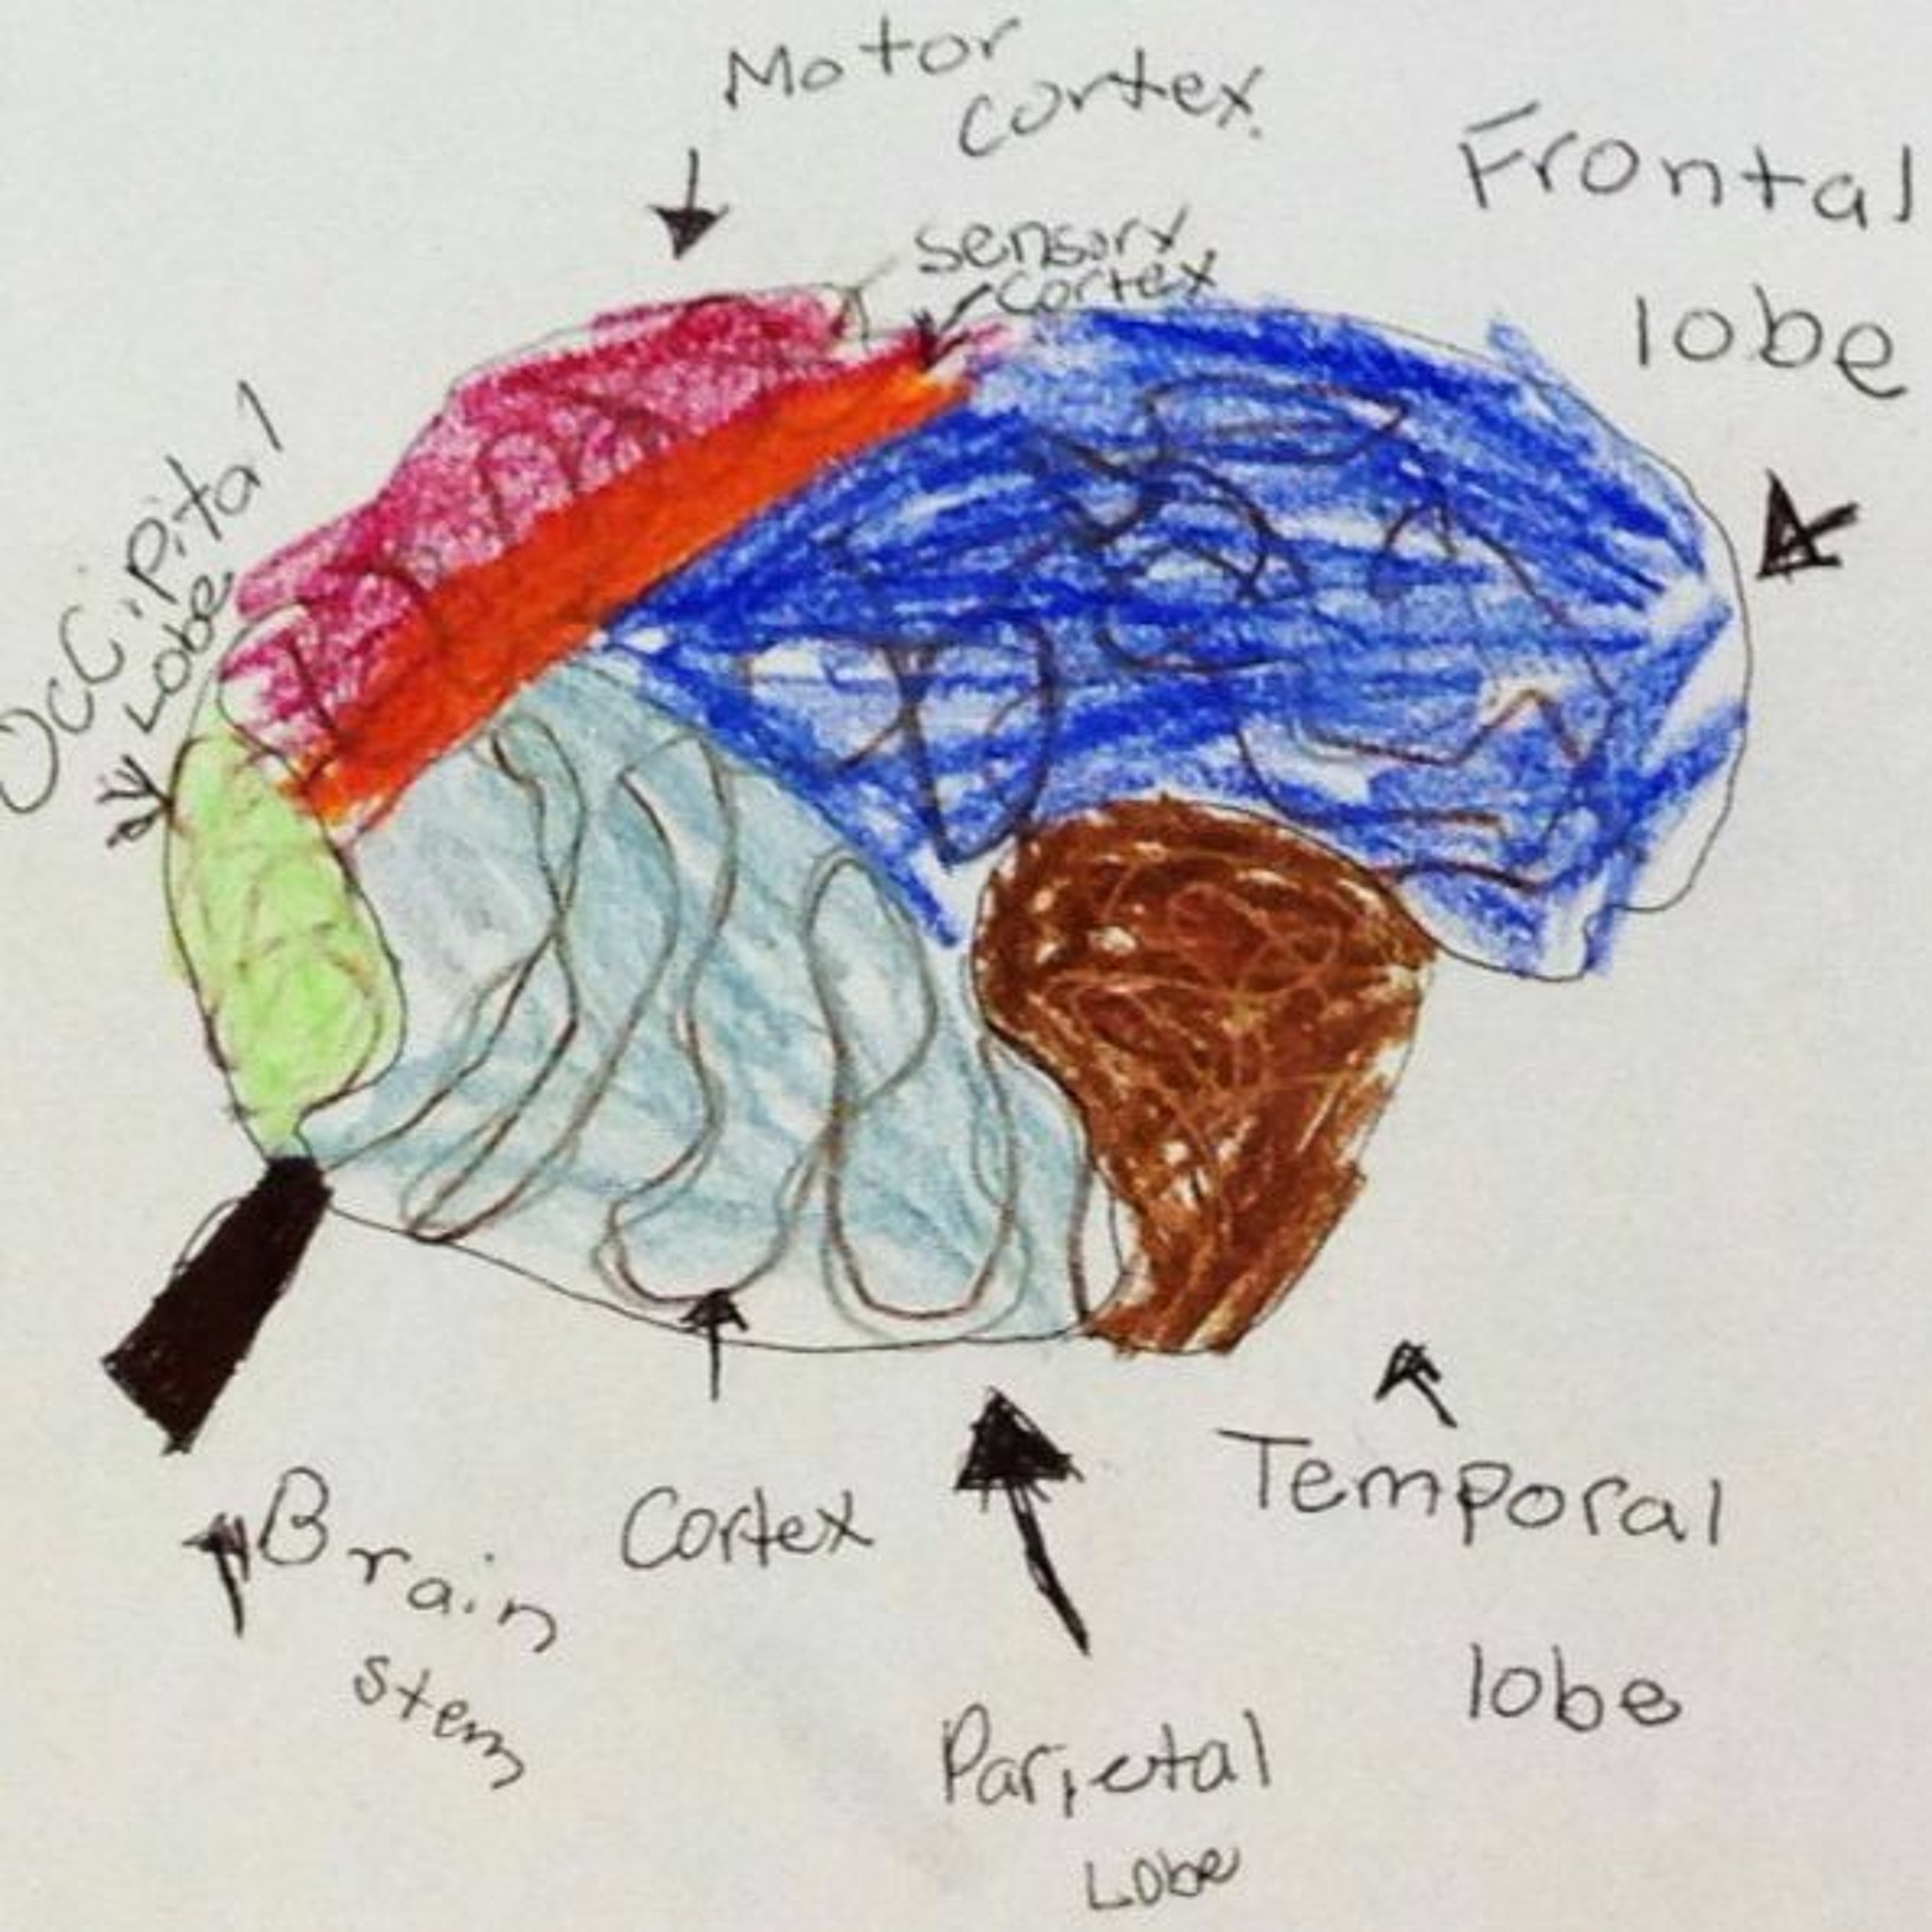 Motor
cortex.
Frontal
lobe
sensory
cortex
Occipital
Lobe
Brain
stem
Cortex
Temporal
lobe
Parietal
Lobe